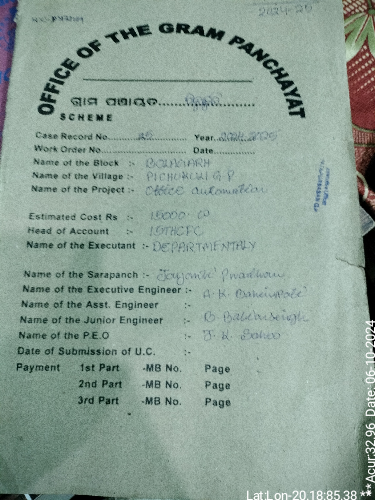 2024-25
OFFICE OF THE GRAM PANCHAYAT
ଗ୍ରାମ ପଞ୍ଚାୟତ
SCHEME
Case Record No. 25 Year 2024-2025
Work Order No. Date
Name of the Block :- BOLAGARH
Name of the Village :- PICHUKULI G.P
Name of the Project :- Office automation
Estimated Cost Rs :- 15000.00
Head of Account :- 15THCFC
Name of the Executant :- DEPARTMENTALY
Name of the Sarapanch :- Jayanti Pradhan
Name of the Executive Engineer :- A.K.
Name of the Asst. Engineer :-
Name of the Junior Engineer :- B.
Name of the P.E.O :- J.K. Sahoo
Date of Submission of U.C. :-
Payment 1st Part -MB No. Page
2nd Part -MB No. Page
3rd Part -MB No. Page
Lat:Lon-20.18:85.38
***Acur:32.96 Date: 06-10-2024